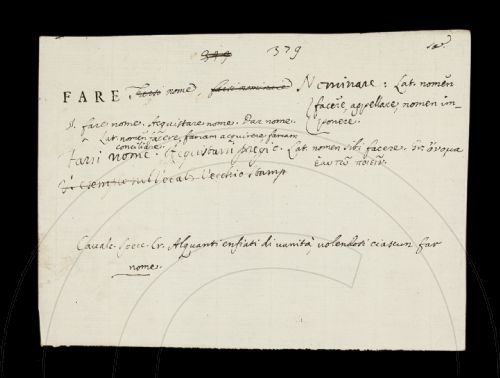 379
FARE nome, Nominare: Lat. nomen
facere, appellare, nomen im-
ponere.
§. fare nome. Acquistare nome. Dar nome.
Lat. nomen facere, famam acquirere, famam
conciliare.
Farsi nome. Acquistarsi pregio. Lat. nomen sibi facere.
ἑαυτῷ ποιεῖν.
Vecchio Stamp
Cavalc. Specc. Cr. Alquanti enfiati di vanità, volendosi ciascun far
nome.